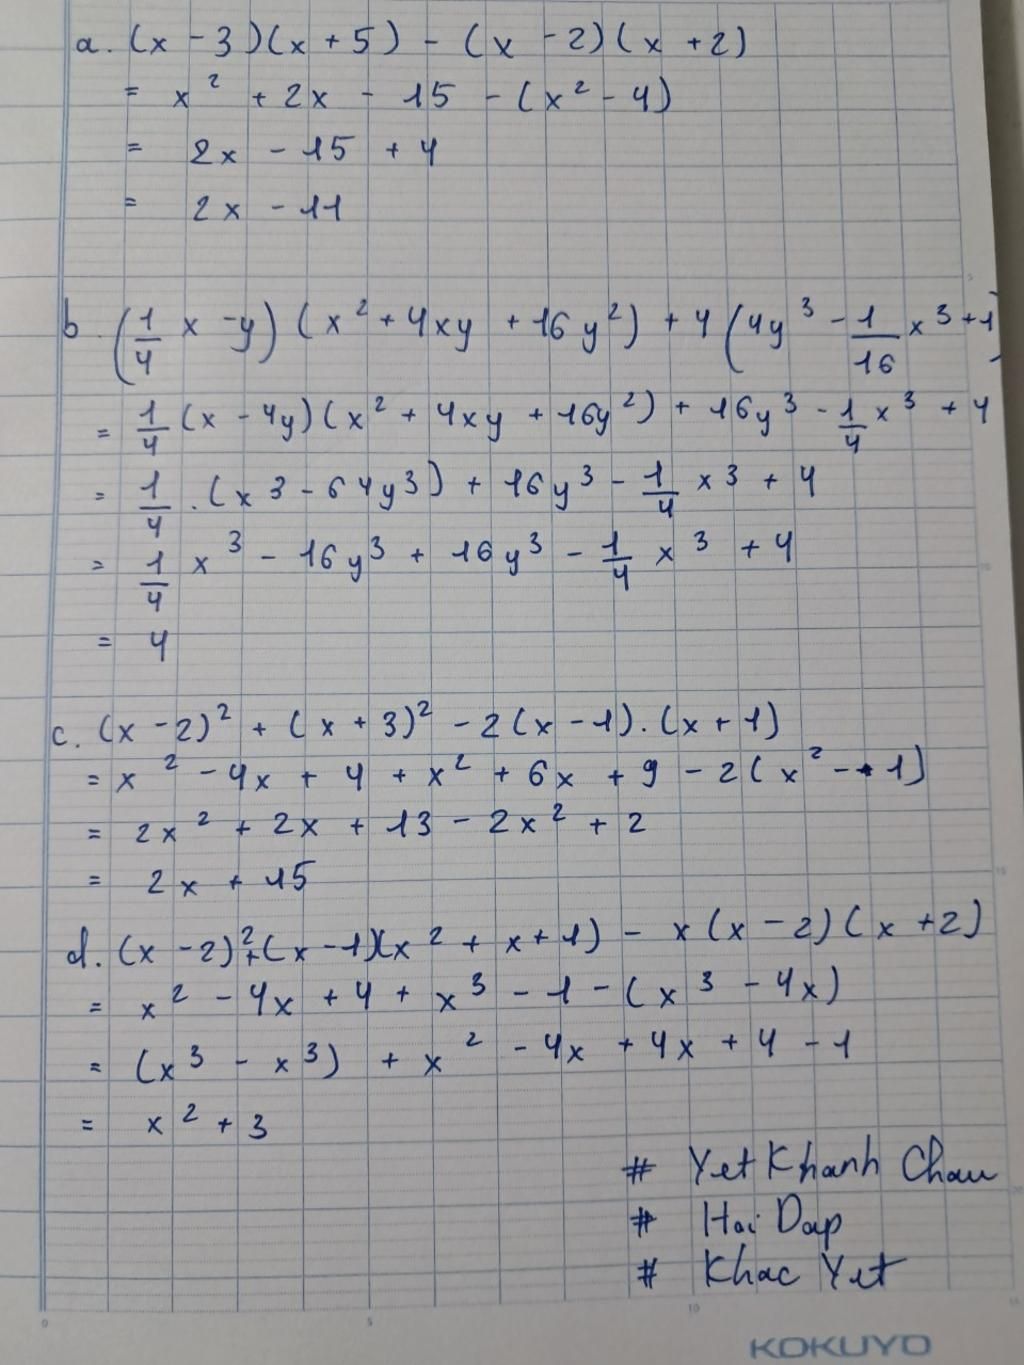 a. (x - 3)(x + 5) - (x - 2)(x + 2)
= x² + 2x - 15 - (x² - 4)
= 2x - 15 + 4
= 2x - 11
b. (1/4 x - y) (x² + 4xy + 16y²) + 4 (4y³ - 1/16 x³ + 1)
= 1/4 (x - 4y)(x² + 4xy + 16y²) + 16y³ - 1/4 x³ + 4
= 1/4 . (x³ - 64y³) + 16y³ - 1/4 x³ + 4
= 1/4 x³ - 16y³ + 16y³ - 1/4 x³ + 4
= 4
c. (x - 2)² + (x + 3)² - 2(x - 1).(x + 1)
= x² - 4x + 4 + x² + 6x + 9 - 2(x² - 1)
= 2x² + 2x + 13 - 2x² + 2
= 2x + 15
d. (x - 2)² + (x - 1)(x² + x + 1) - x(x - 2)(x + 2)
= x² - 4x + 4 + x³ - 1 - (x³ - 4x)
= (x³ - x³) + x² - 4x + 4x + 4 - 1
= x² + 3
# Yet Khanh Chau
# Hoi Dap
# Khac Yet
5
10
15
20
0 5 10 15
KOKUYO